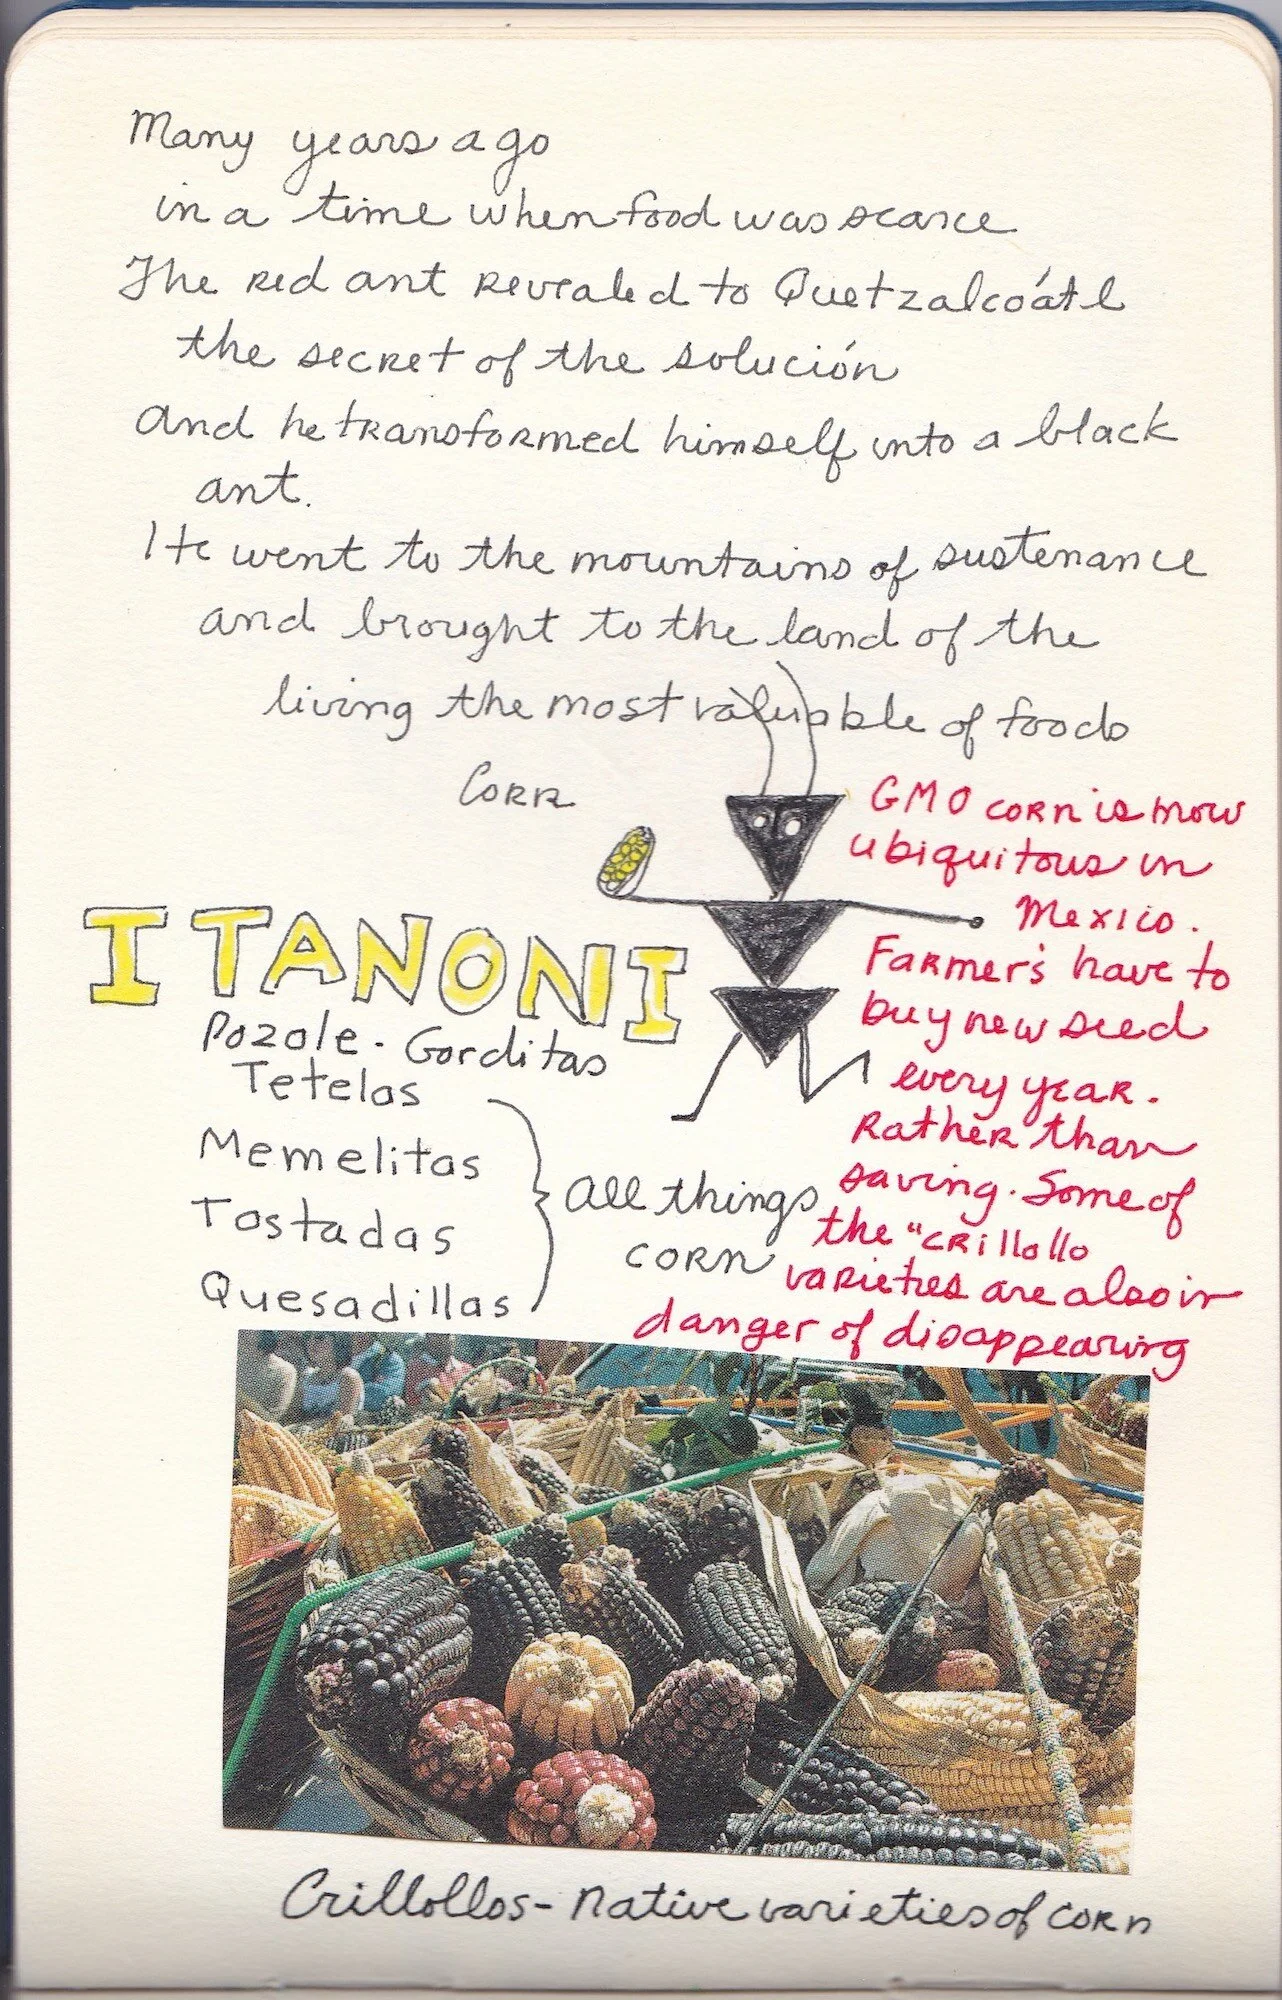 Many years ago
in a time when food was scarce
The red ant revealed to Quetzalcóatl
the secret of the solución
and he transformed himself into a black
ant.
He went to the mountains of sustenance
and brought to the land of the
living the most valuable of foods
Corn
ITANONI
Pozole - Gorditas
Tetelas
Memelitas
Tostadas
Quesadillas
All things
corn
GMO corn is now
ubiquitous in
Mexico.
Farmer's have to
buy new seed
every year.
Rather than
saving. Some of
the "crillollo
varieties are also in
danger of disappearing
Crillollos - Native varieties of corn